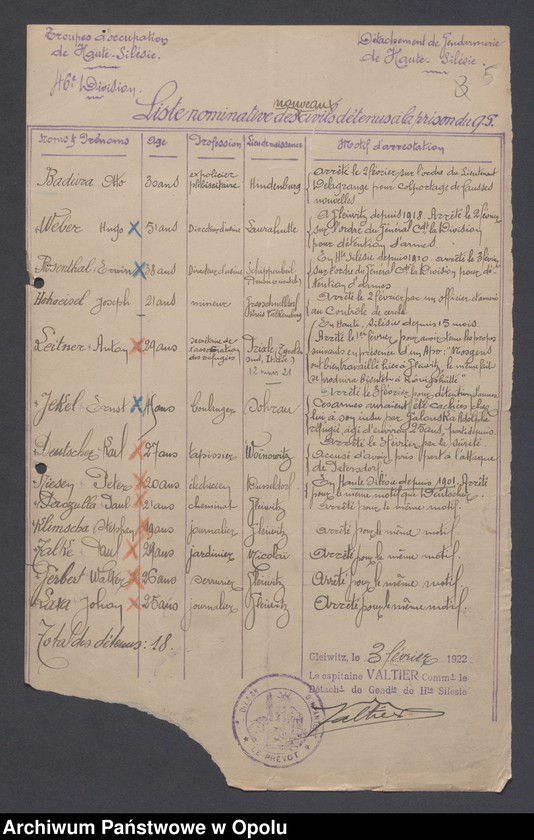 Troupes d'occupation
de Haute-Silésie.
46e Division.
Détachement de Gendarmerie
de Haute-Silésie.
5
Liste nominative des nouveaux civils détenus à la prison du 95.
Noms & Prénoms
Age
Profession
Lieu de naissance
Motif d'arrestation
Badura Otto
30 ans
expolicier
plébiscitaire
Hindenburg
Arrêté le 2 février sur l'ordre du Lieutenant
Delagrange pour colportage de fausses
nouvelles
Weber Hugo
51 ans
Directeur d'usine
Laurahutte
A Gleiwitz depuis 1918. Arrêté le 2 février
sur l'ordre du Général Ct la Division
pour détention d'armes.
Rosenthal Erwin
38 ans
Directeur d'usine
En Hte Silésie depuis 1920. arrêté le 3 février
sur l'ordre du Général Ct la Division pour dé-
tention d'armes
Hoheisel Joseph
21 ans
mineur
Arrêté le 2 février par un officier
au Contrôle de
Leitner Anton
29 ans
secrétaire de
l'association
des réfugiés
12 mars 21
En Haute Silésie depuis 15 mois.
Arrêté le 1er février pour avoir tenu les propos
suivants en présence d'un
ont bien travaillé hier à Gleiwitz, le même fait
se produira bientôt à Königshütte"
Jekel Ernst
ans
boulanger
Sohrau
Arrêté le 3 février pour détention d'armes
Ces armes auraient été cachées chez
lui à son insu par Adolphe
réfugié âgé d'environ 25 ans,
Deutscher Karl
27 ans
tapissier
Woinowitz
Arrêté le 3 février par la sûreté
accusé d'avoir pris part à l'attaque
de Petersdorf
Riesen Peter
20 ans
électricien
Dusseldorf
En Haute Silésie depuis 1901. Arrêté
pour le même motif que Deutscher
Paul
21 ans
cheminot
Gleiwitz
arrêté pour le même motif.
Klimscha Stephan
19 ans
journalier
Gleiwitz
arrêté pour le même motif
Falke Paul
29 ans
jardinier
Nicolaï
Arrêté pour le même motif.
Ferbert Walter
26 ans
serrurier
Gleiwitz
Arrêté pour le même motif
Johan
25 ans
journalier
Gleiwitz
Arrêté pour le même motif.
Total des détenus : 18.
Gleiwitz, le 3 février 1922
Le capitaine VALTIER Commt le
Détacht de Gendie de Hte Silésie
Valtier
LE PRÉVOT
Archiwum Państwowe w Opolu